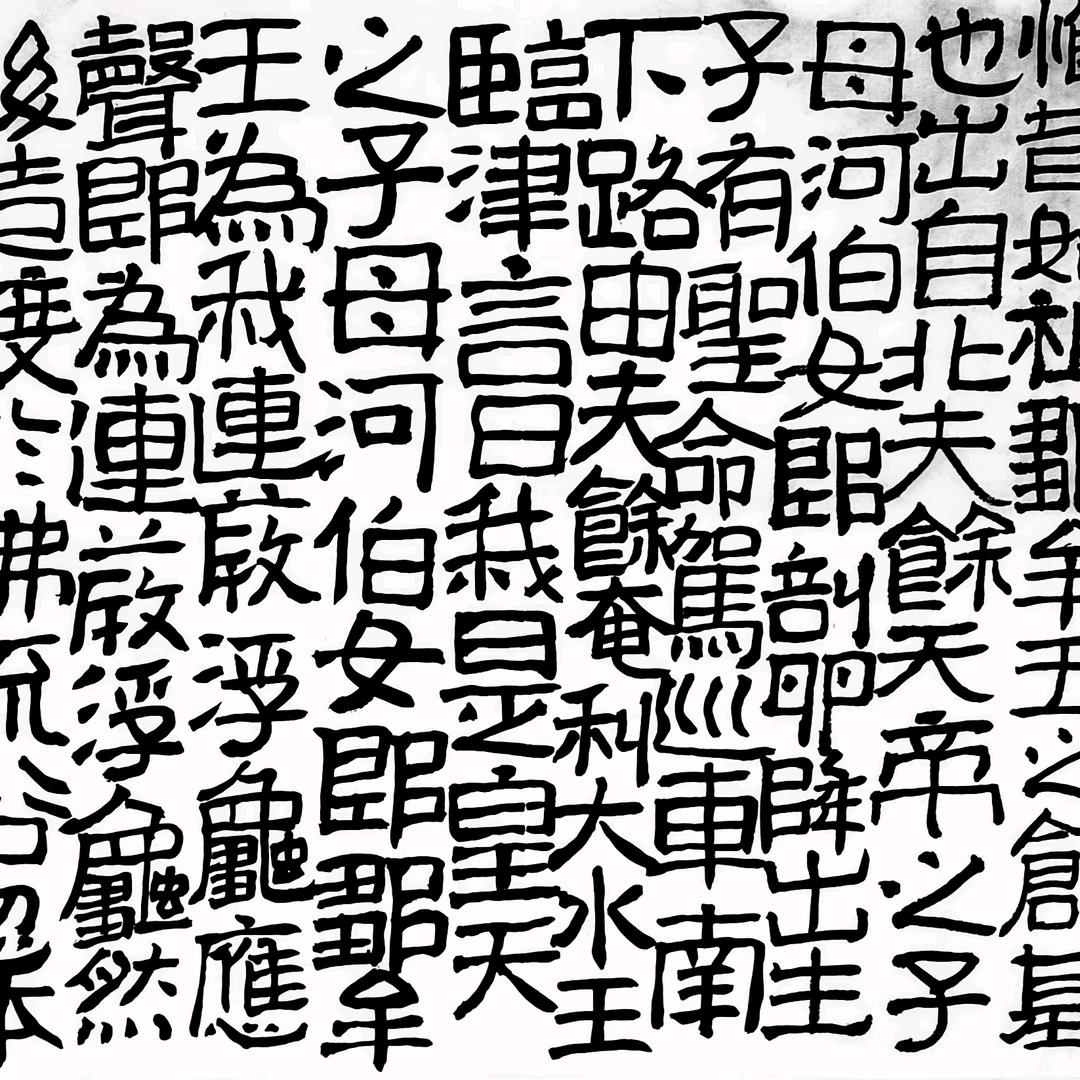 惟昔始祖鄒牟王之創基
也出自北夫餘天帝之子
母河伯女郎剖卵降出生
子有聖命駕巡車南
下路由夫餘奄利大水王
臨津言曰我是皇天
之子母河伯女郎鄒牟
王為我連葭浮龜應
聲即為連葭浮龜然
後造渡於沸流谷忽本